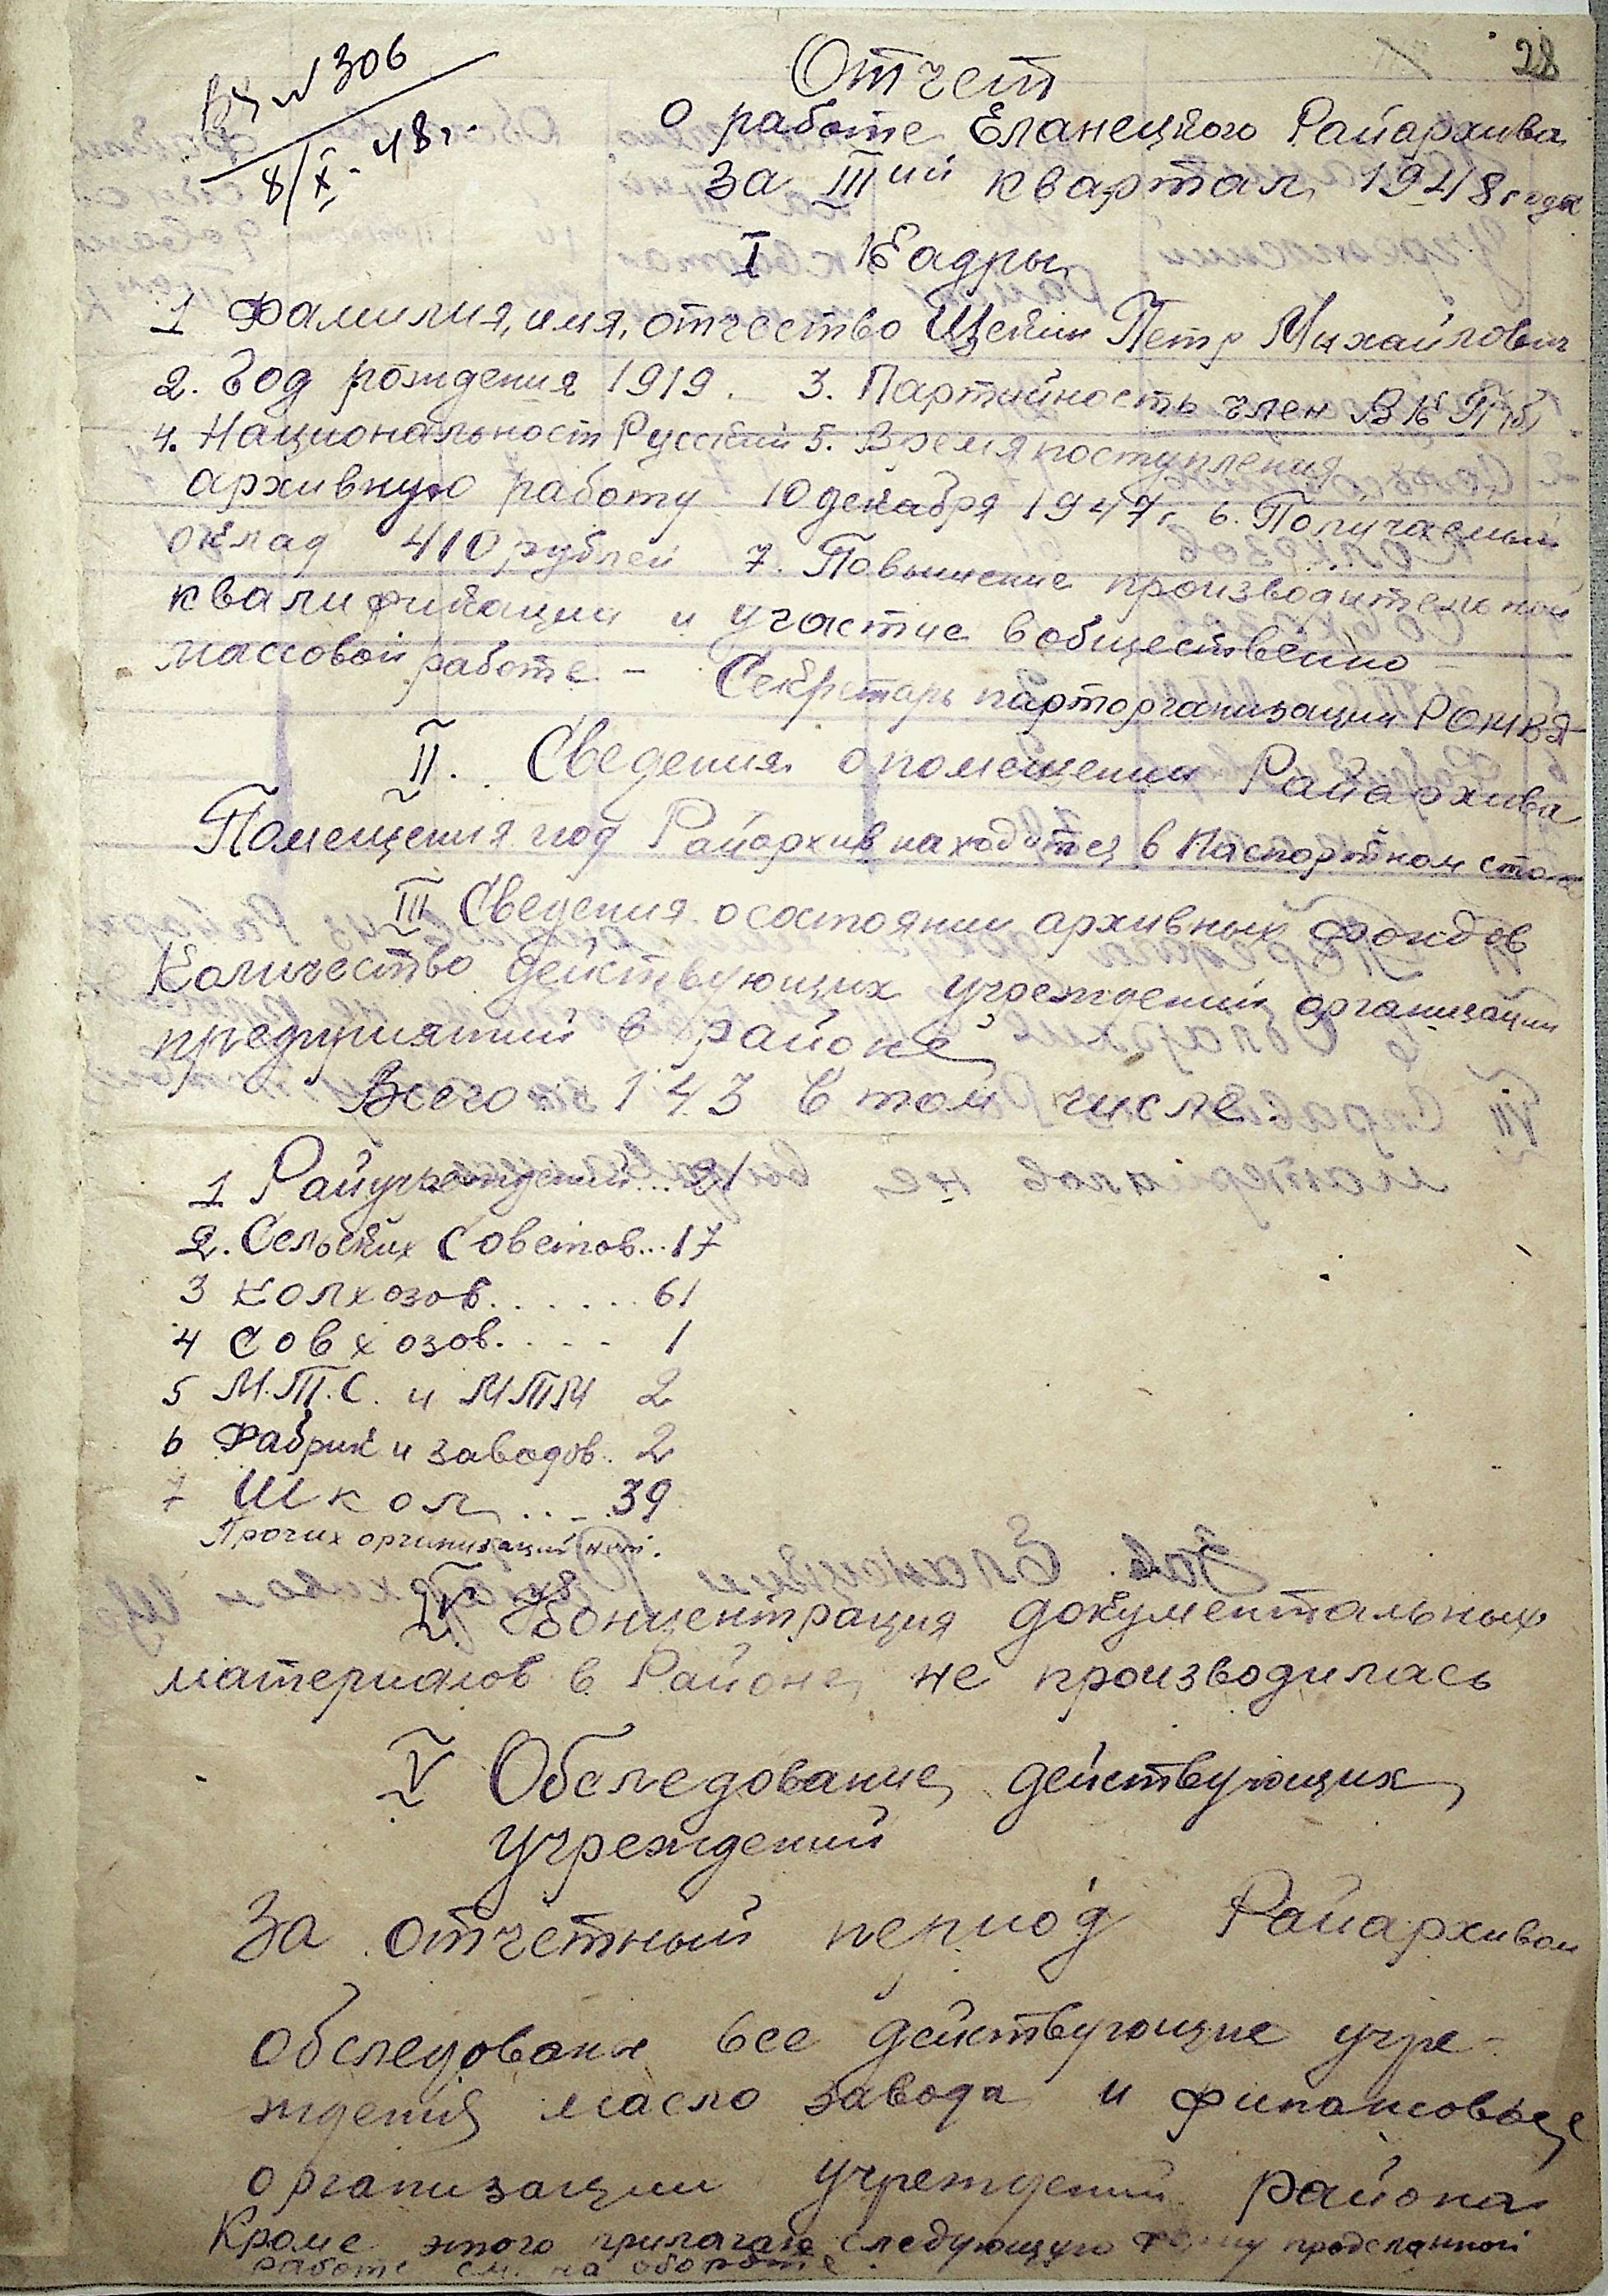 28
Вх № 306
8/X - 48 г.
Отчет
о работе Еланецкого Райархива
за III ий квартал 1948 года
I Кадры
1 Фамилия, имя, отчество Петр Михайлович
2. Год рождения 1919. 3. Партийность член ВКП(б)
4. Национальност Русский 5. Время поступления
архивную работу 10 декабря 1947 г. 6. Получаемый
оклад 410 рублей 7. Повышение производительной
квалификации и участие в общественно-
массовой работе - Секретарь парторганизации РОМВД
II. Сведения о помещении Райархива
Помещения под Райархив находится в Паспортном столе
III Сведения о состоянии архивных фондов
Количество действующих учреждений организации
предприятий в районе
Всего 143 в том числе.
1 Райучреждений... 21
2. Сельских Советов... 17
3 колхозов....... 61
4 совхозов..... 1
5 М.Т.С. и МТМ 2
6 Фабрик и заводов.. 2
7 Школ.... 39
Прочих организаций нет.
IV Концентрация документальных
материалов в Районе не производилась
V Обследование действующих
учреждений
За отчетный период Райархивом
обследованы все действующие учре-
ждения масло завода и финансовые
организации учреждений района
Кроме этого прилагаю следующую форму проделанной
работе см. на обороте.